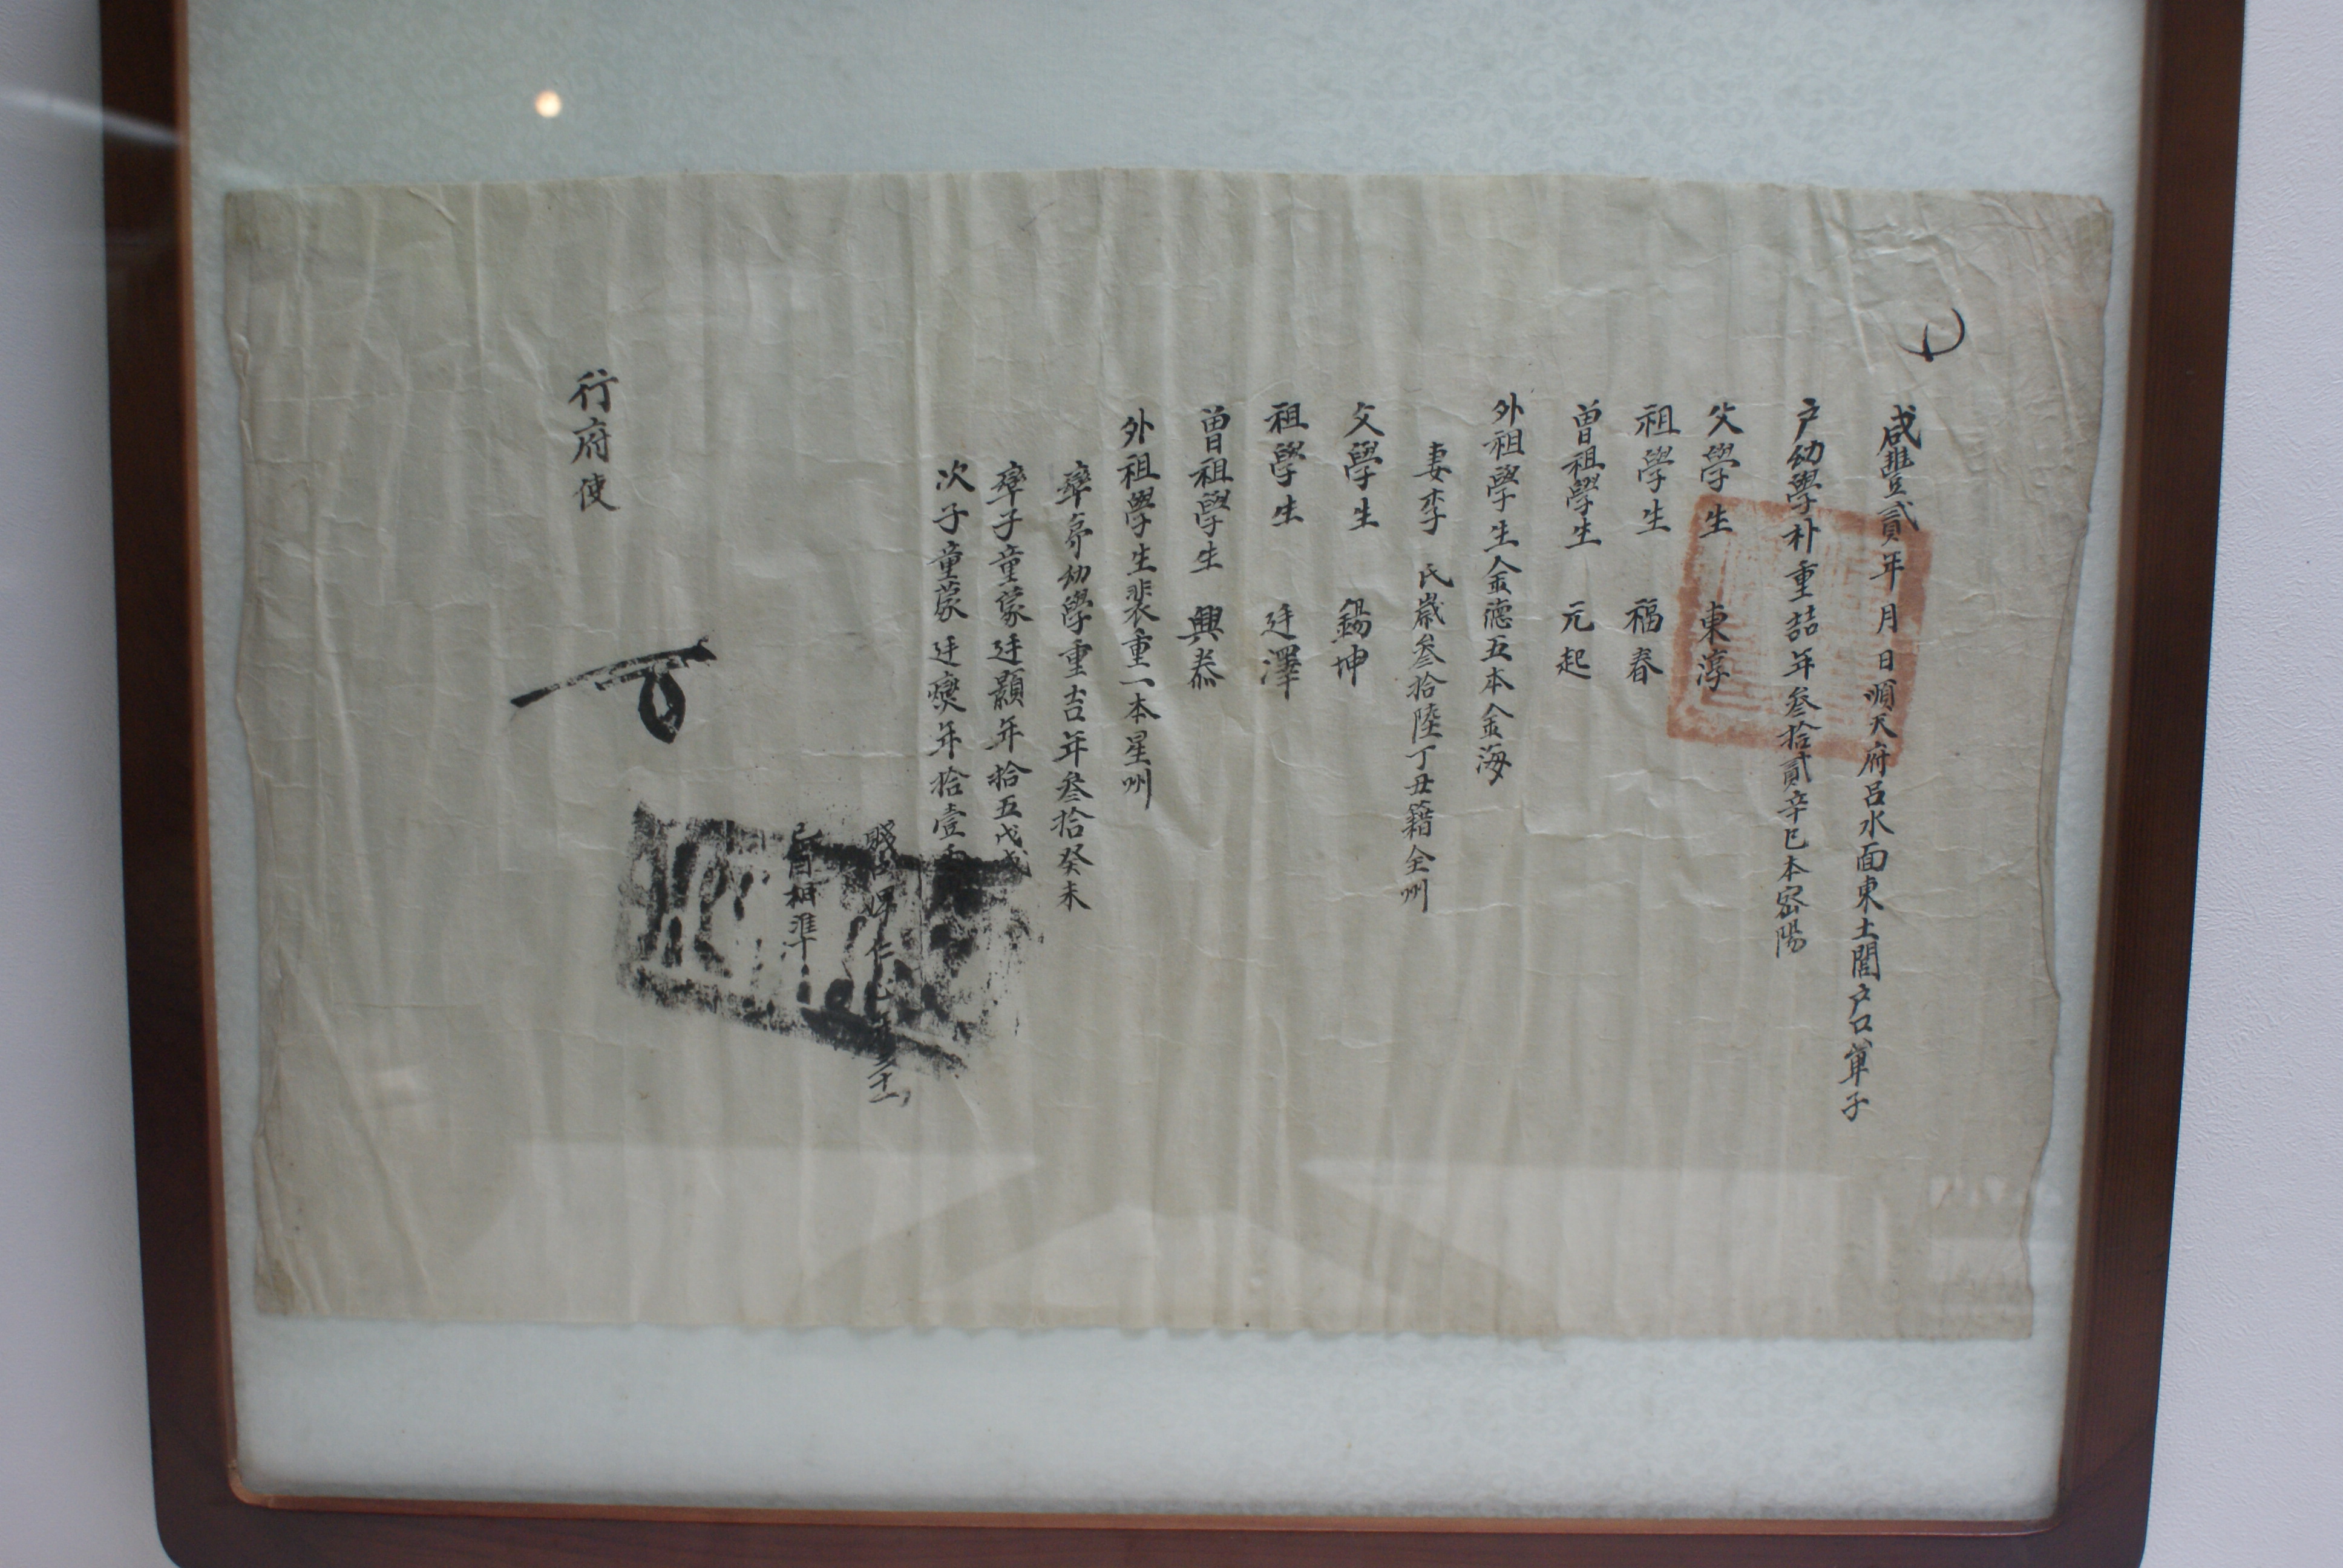 咸豐貳年 月 日順天府呂水面東土閭戶口單子
戶幼學朴重喆年叁拾貳辛巳本密陽
父學生 東淳
祖學生 福春
曾祖學生 元起
外祖學生金德五本金海
妻李 氏歲叁拾陸丁丑籍全州
父學生 錫坤
祖學生 廷澤
曾祖學生 興泰
外祖學生裴重一本星州
率弟幼學重吉年叁拾癸未
率子童蒙廷顯年拾五戊戌
次子童蒙廷燮年拾壹
賤口婢仁
己酉相準
行府使